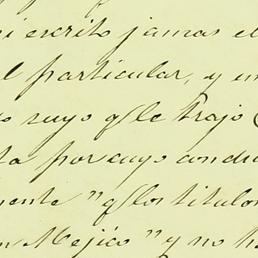 ni escrito jamas el
l particular, y un
o suyo q̃ le trajo
ta por cuyo condu
mente" q̃ los titulo
n Mejico" y no h